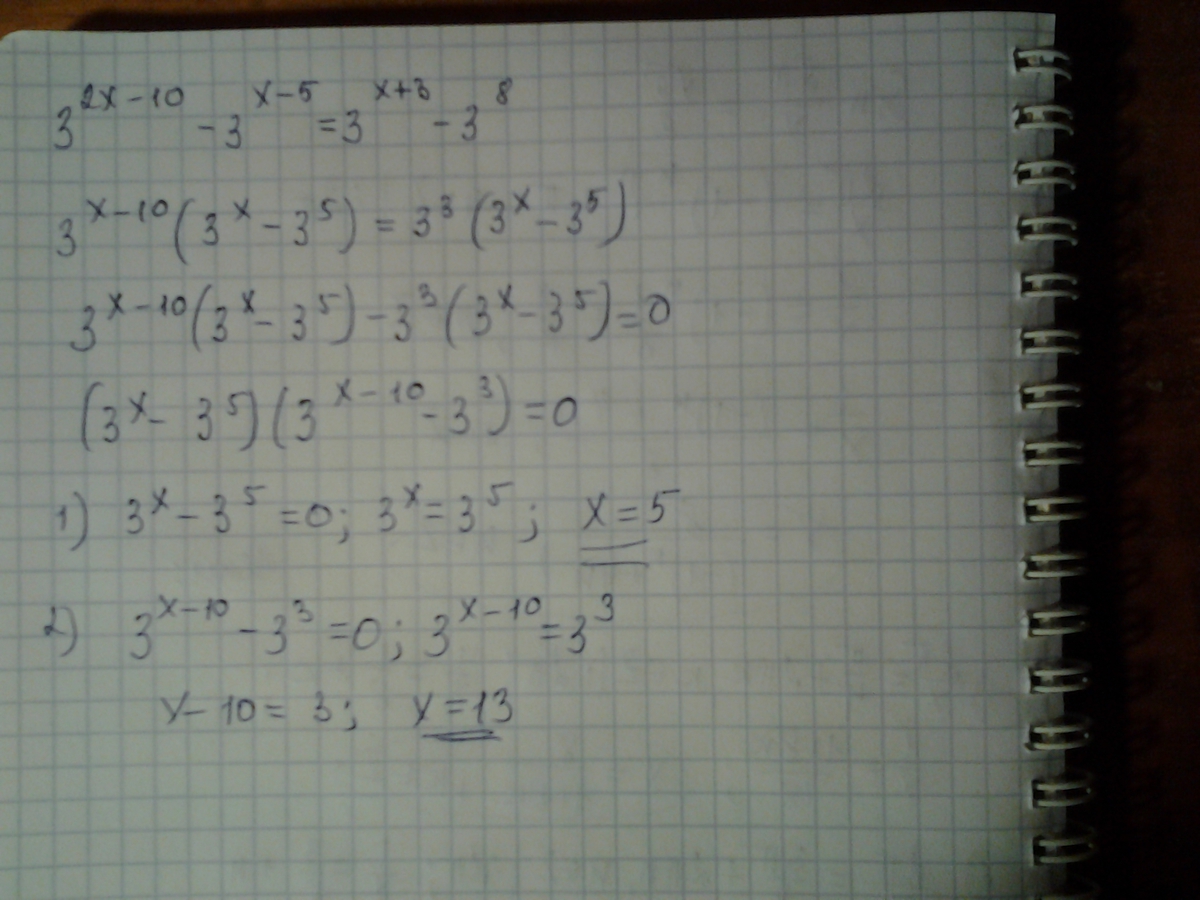 3^{2x-10} - 3^{x-5} = 3^{x+3} - 3^8
3^{x-10}(3^x - 3^5) = 3^3(3^x - 3^5)
3^{x-10}(3^x - 3^5) - 3^3(3^x - 3^5) = 0
(3^x - 3^5)(3^{x-10} - 3^3) = 0
1) 3^x - 3^5 = 0; 3^x = 3^5; x = 5
2) 3^{x-10} - 3^3 = 0; 3^{x-10} = 3^3
x - 10 = 3; x = 13